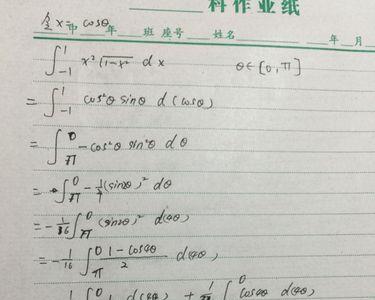 科作业纸
令 x = cosθ
年 班 座号 姓名 年 月
∫_{-1}^{1} x² √(1-x²) dx θ∈[0,π]
= ∫_{-1}^{1} cos²θ sinθ d(cosθ)
= ∫_{π}^{0} -cos²θ sin²θ dθ
= ∫_{π}^{0} -1/4 (sin2θ)² dθ
= -1/16 ∫_{π}^{0} (sin2θ)² d(4θ)
= -1/16 ∫_{π}^{0} (1-cos4θ)/2 d(4θ)
∫ 1 d(4θ) + ∫^{0} cos4θ d(4θ)